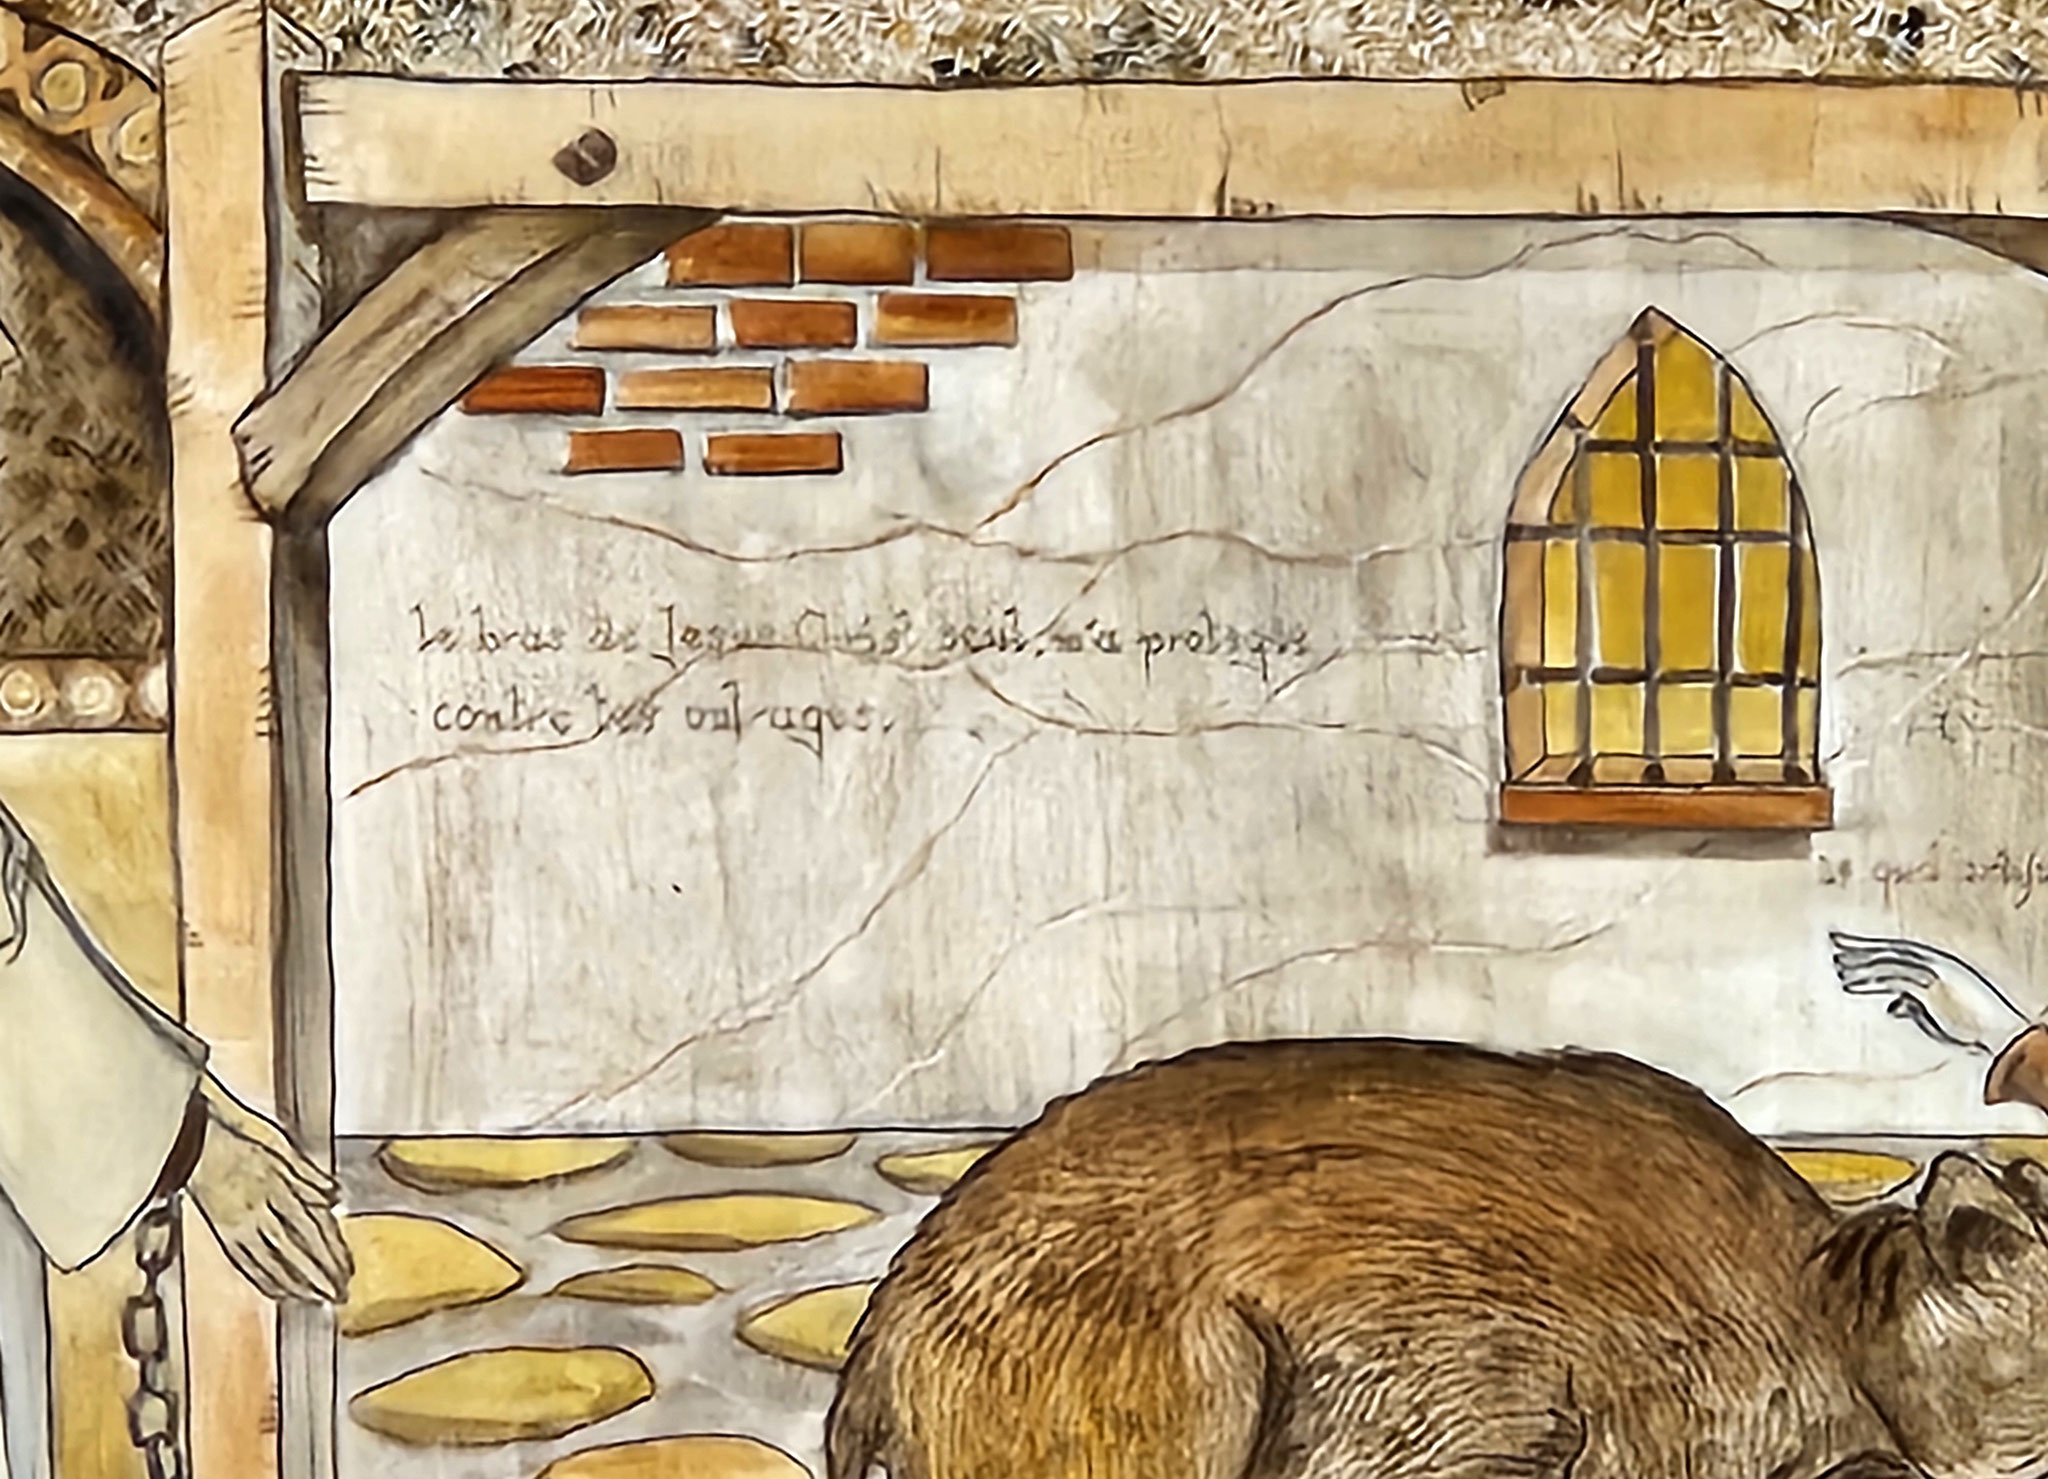 le bras de Jesus Christ seul, m'a protegée
contre les outrages.
Le quel